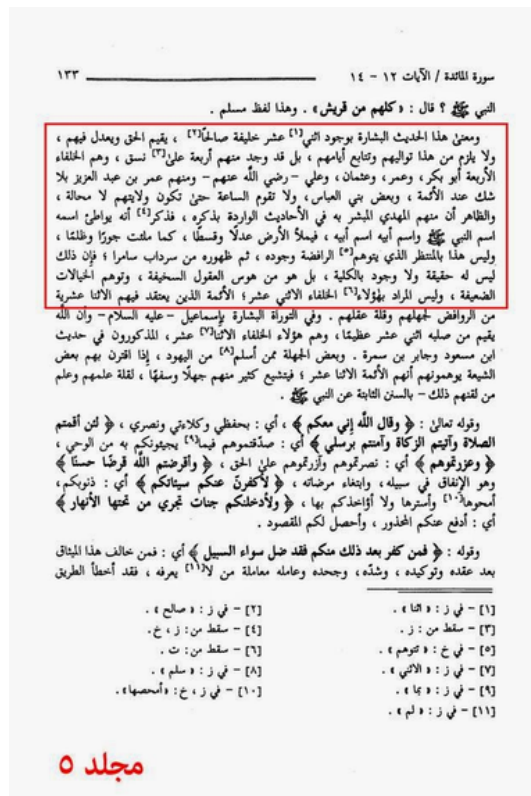 سورة المائدة / الآيات ١٢ - ١٤ ١٣٣
النبي ﷺ ؟ قال : « كلهم من قريش » . وهذا لفظ مسلم .
ومعنى هذا الحديث البشارة بوجود اثني[١] عشر خليفة صالحًا[٢] ، يقيم الحق ويعدل فيهم ،
ولا يلزم من هذا تواليهم وتتابع أيامهم ، بل قد وجد منهم أربعة على[٣] نسق ، وهم الخلفاء
الأربعة أبو بكر، وعمر، وعثمان، وعلي - رضي الله عنهم - ومنهم عمر بن عبد العزيز بلا
شك عند الأئمة ، وبعض بني العباس، ولا تقوم الساعة حتى تكون ولايتهم لا محالة ،
والظاهر أن منهم المهدي المبشر به في الأحاديث الواردة بذكره ، فذكر[٤] أنه يواطئ اسمه
اسم النبي ﷺ واسم أبيه اسم أبيه ، فيملأ الأرض عدلًا وقسطًا ، كما ملئت جورًا وظلمًا ،
وليس هذا بالمنتظر الذي يتوهم[٥] الرافضة وجوده ، ثم ظهوره من سرداب سامرا ؛ فإن ذلك
ليس له حقيقة ولا وجود بالكلية ، بل هو من هوس العقول السخيفة ، وتوهم الخيالات
الضعيفة ، وليس المراد بهؤلاء[٦] الخلفاء الاثني عشر ؛ الأئمة الذين يعتقد فيهم الاثنا عشرية
من الروافض لجهلهم وقلة عقلهم . وفي التوراة البشارة بإسماعيل - عليه السلام - وأن الله
يقيم من صلبه اثني عشر عظيمًا، وهم هؤلاء الخلفاء الاثنا[٧] عشر، المذكورون في حديث
ابن مسعود وجابر بن سمرة . وبعض الجهلة ممن أسلم[٨] من اليهود ، إذا اقترن بهم بعض
الشيعة يوهمونهم أنهم الأئمة الاثنا عشر ؛ فيتشيع كثير منهم جهلًا وسفهًا ، لقلة علمهم وعلم
من لقنهم ذلك - بالسنن الثابتة عن النبي ﷺ .
وقوله تعالى : ﴿ وقال الله إني معكم ﴾ ، أي : بحفظي وكلاءتي ونصري ، ﴿ لئن أقمتم
الصلاة وآتيتم الزكاة وآمنتم برسلي ﴾ أي : صدّقتموهم فيما[٩] يجيئونكم به من الوحي ،
﴿ وعزرتموهم ﴾ أي : نصرتموهم وآزرتموهم على الحق ، ﴿ وأقرضتم الله قرضًا حسنًا ﴾
وهو الإنفاق في سبيله ، وابتغاء مرضاته ، ﴿ لأكفرنّ عنكم سيئاتكم ﴾ أي : ذنوبكم،
أمحوها[١٠] وأسترها ولا أؤاخذكم بها ، ﴿ ولأدخلنكم جنات تجري من تحتها الأنهار ﴾
أي : أدفع عنكم المحذور ، وأحصل لكم المقصود .
وقوله : ﴿ فمن كفر بعد ذلك منكم فقد ضل سواء السبيل ﴾ أي : فمن خالف هذا الميثاق
بعد عقده وتوكيده ، وشدّه، وجحده وعامله معاملة من لا[١١] يعرفه ، فقد أخطأ الطريق
[١] - في ز : « اثنا » . [٢] - في ز : « صالح » .
[٣] - سقط من : ز . [٤] - سقط من: ز ، خ.
[٥] - في خ : « تتوهم » . [٦] - سقط من: ت .
[٧] - في ز : « الاثني » . [٨] - في ز : « سلم » .
[٩] - في ز : « بما » . [١٠] - في ز ، خ: « أمحصها».
[١١] - في ز : « لم » .
مجلد ٥